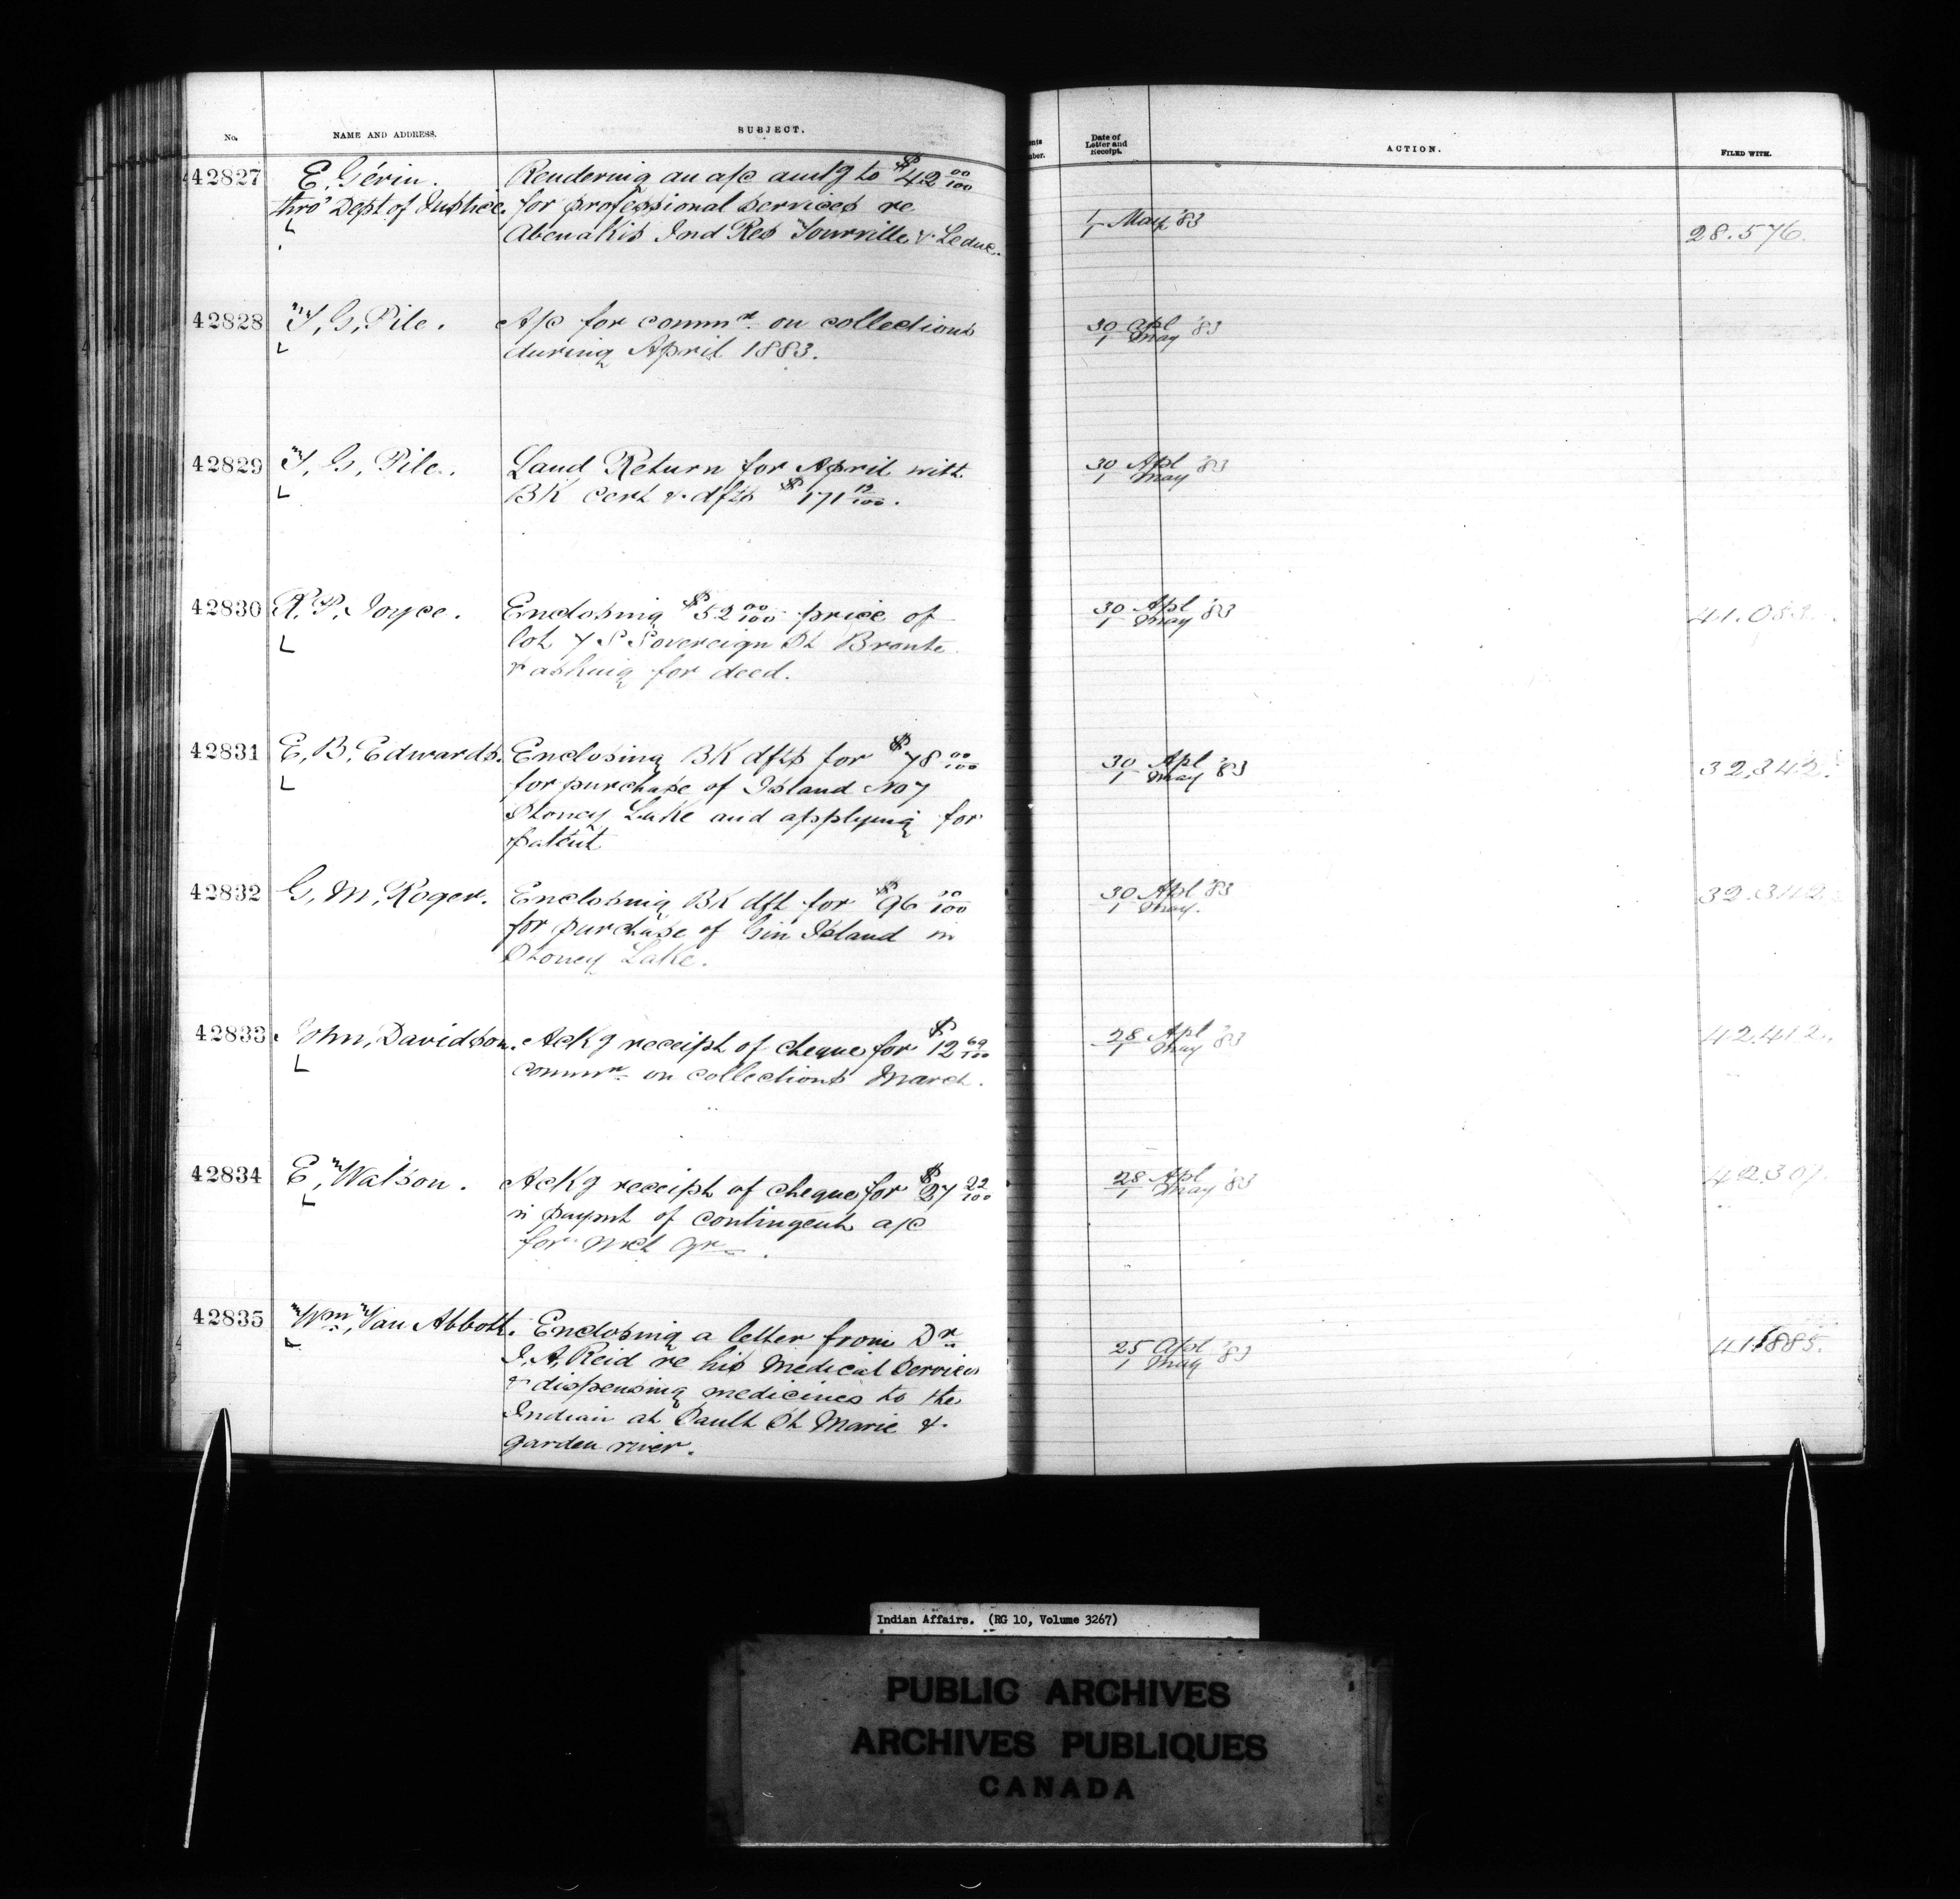 No. NAME AND ADDRESS. SUBJECT.
Date of Letter and Receipt. ACTION. FILED WITH.
42827 E. Gérin. Rendering an a/c amtg to $42 00/100
thro' Dept of Justice. for professional services re
Abenakis Ind Res Tourville & Leduc.
1/1 May '83 28.576.
42828 T. G. Pile. A/c for commn on collections
during April 1883.
30 Apl / 1 May '83
42829 T. G. Pile. Land Return for April with
BK cert & dfts $171 12/100.
30 Apl / 1 May '83
42830 R. P. Joyce. Enclosing $52 00/100 price of
lot 7 S Sovereign St Bronte
& asking for deed.
30 Apl / 1 May '83 41.083.
42831 E. B. Edwards. Enclosing BK dfts for $78 00/100
for purchase of Island No 7
Stoney Lake and applying for
patent
30 Apl / 1 May '83 32,342.
42832 G. M. Roger. Enclosing BK dft for $96 /100
for purchase of Gin Island in
Stoney Lake.
30 Apl / 1 May. '83 32.342.
42833 John, Davidson. Ackg receipt of cheque for $12 69/100
commn on collections March.
28 Apl / 1 May '83 42.412.
42834 E, Watson. Ackg receipt of cheque for $27 22/100
in paymt of contingent a/c
for Mch Qr.
28 Apl / 1 May '83 42.307.
42835 Wm, Van Abbott. Enclosing a letter from Dr
J. A. Reid re his Medical Services
& dispensing medicines to the
Indian at Sault St Marie &
garden river.
25 Apl / 1 May '83 41885.
Indian Affairs. (RG 10, Volume 3267)
PUBLIC ARCHIVES
ARCHIVES PUBLIQUES
CANADA